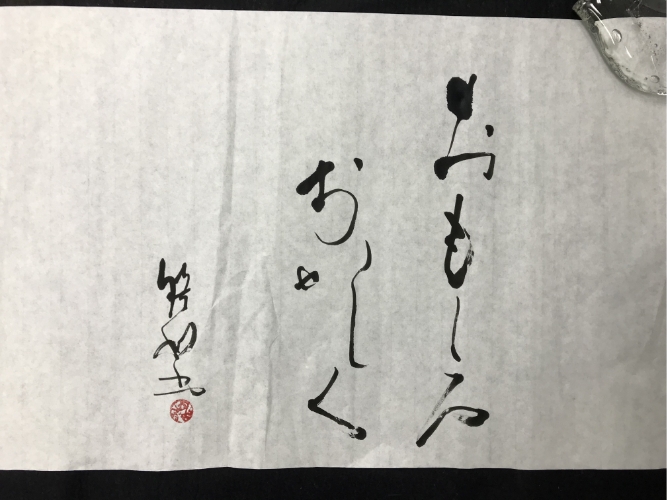 おもしろ
おかしく